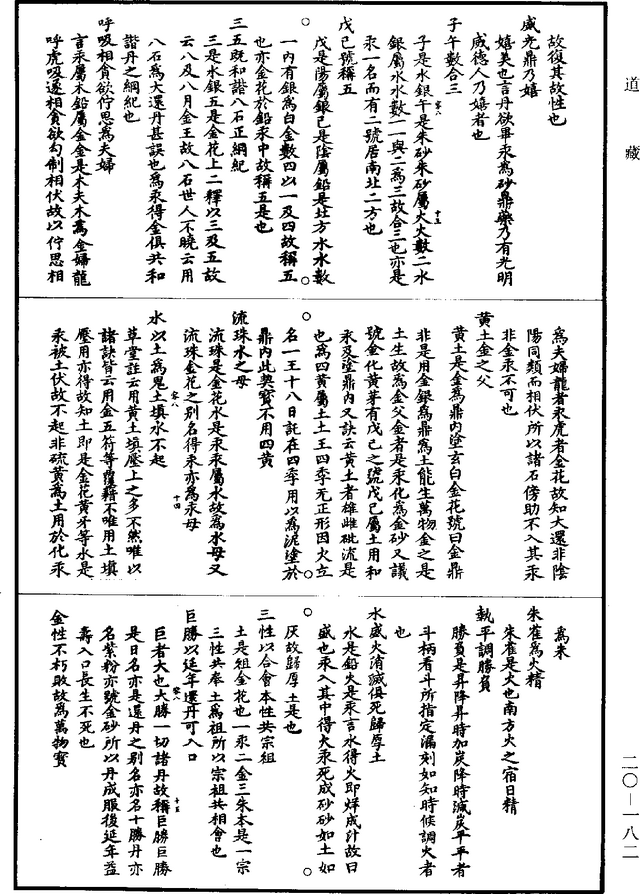 道藏
故復其故性也
威光鼎乃嬉
嬉美也言丹欲畢汞為砂鼎藥乃有光明
威德人乃嬉者也
子午數合三
子是水銀午是朱砂朱砂屬火火數二水
銀屬水水數一一與二為三故合三也亦是
汞一名而有二號居南北二方也
戊己號稱五
戊是陽屬銀己是陰屬鉛是北方水水數
一內有銀為白金數四以一及四故稱五
也亦金花於鉛汞中故稱五是也
三五既和諧八石正綱紀
三是水銀五是金花上二釋以三及五故
云八及八月金王故八石世人不曉云用
八石為大還丹甚誤也為汞得金俱共和
諧丹之綱紀也
呼吸相貪欲佇思為夫婦
言汞屬木鉛屬金金是木夫木為金婦龍
呼虎吸遂相貪欲勾制相伏故以佇思相
為夫婦龍者汞虎者金花故知大還非陰
陽同類而相伏所以諸石傍助不入其汞
非金汞不可也
黃土金之父
黃土是金為鼎內塗玄白金花號曰金鼎
非是用金銀為鼎為土能生萬物金之是
土生故為金父金者是汞化為金砂又議
號金化黃芽有戊己之號戊己屬土用和
汞及塗鼎內又訣云黃土者雄雌砒流是
也為四黃屬土土王四季无正形因火立
名一王十八日託在四季用以為泥塗於
鼎內此契寶不用四黃
流珠水之母
流珠是金花水是汞汞屬水故為水母又
流珠金花之別名得汞亦為汞母
水以土為鬼土填水不起
草堂註云用黃土填壓上之多不然唯以
諸訣皆云用金五符等覆藉不唯用土填
壓用亦得故知土即是金花黃芽等水是
汞被土伏故不起非硫黃為土用於化汞
為朱
朱雀為火精
朱雀是火也南方火之宿日精
執平調勝負
勝負是昇降昇時加炭降時減炭平平者
斗柄看斗所指定漏刻如知時候調火者
也
水盛火消滅俱死歸厚土
水是鉛火是汞言水得火即烊成汁故曰
盛也汞入其中得火汞死成砂砂如土如
灰故歸厚土是也
三性以合會本性共宗祖
土是爼金花也一汞二金三朱本是一宗
三性共奉土為祖所以宗祖相會也
巨勝以延年還丹可入口
巨者大也大勝一切諸丹故稱巨勝巨勝
是日名亦是還丹之別名亦名十勝丹亦
名紫粉亦號金砂所以丹成服後延年益
壽入口長生不死也
金性不朽敗故為萬物寶
二〇—一八二